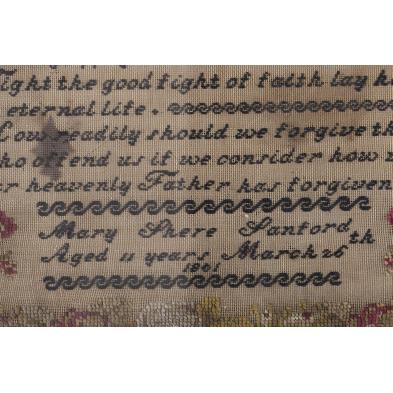 Fight the good fight of faith lay h
eternal life.
How readily should we forgive th
ho offend us if we consider how
r heavenly Father has forgiven
Mary Shere Sanford
Aged 11 years March 26th